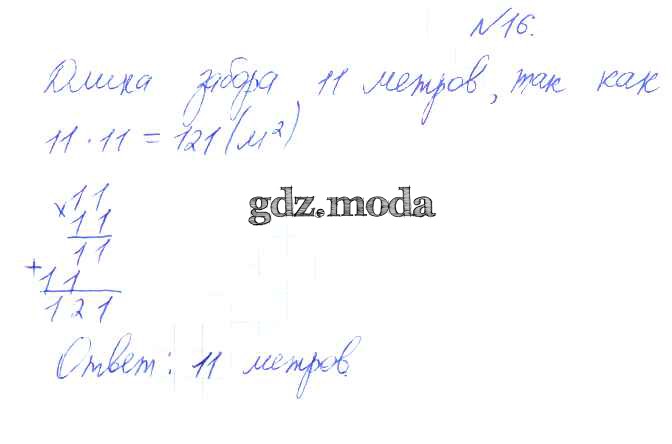 №16.
Длина забора 11 метров, так как
11 · 11 = 121 (м²)
× 11
11
11
+ 11
121
gdz.moda
Ответ: 11 метров.